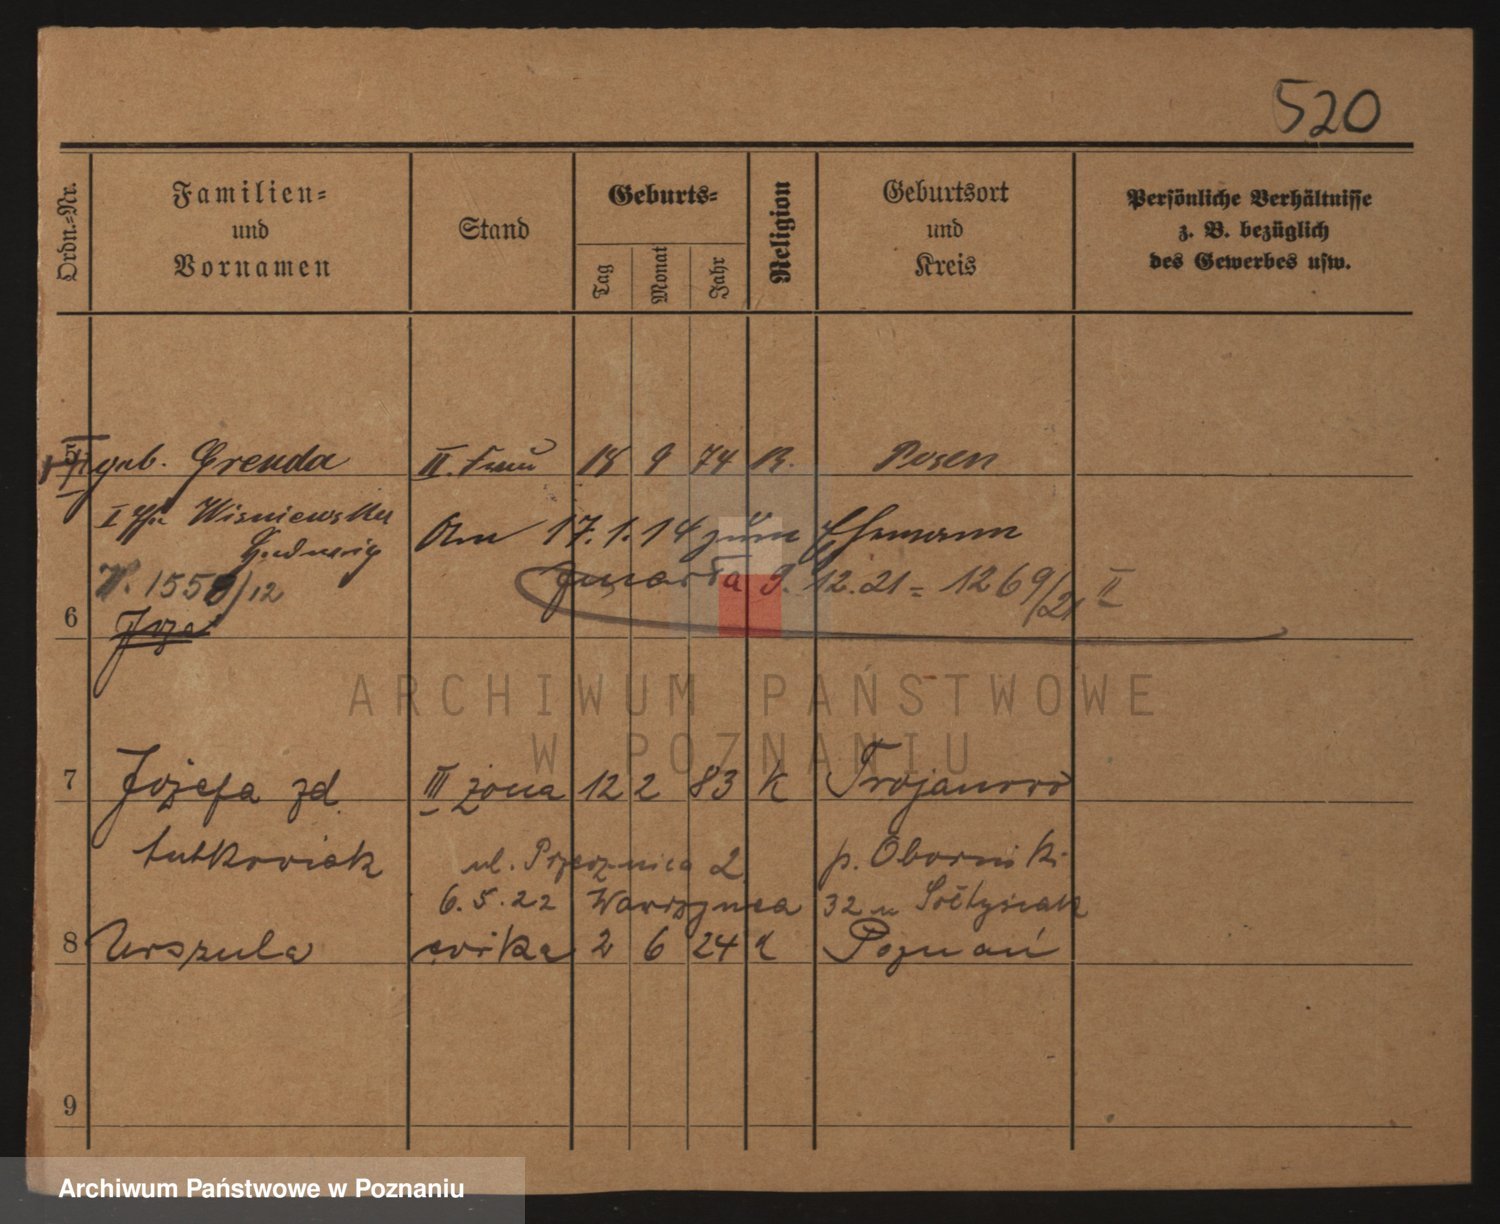 520
Ordn.=Nr.
Familien=
und
Vornamen
Stand
Geburts=
Tag
Monat
Jahr
Religion
Geburtsort
und
Kreis
Persönliche Verhältnisse
z. B. bezüglich
des Gewerbes usw.
5 geb. Grenda II. Frau 18 9 74 Posen
I Wisniewski
Hedwig
Am 17.1.14 zum Ehemann
1558/12
zmarła 9.12.21 = 1269/21 II
6
Józe
ARCHIWUM PAŃSTWOWE
W POZNANIU
7 Józefa zd. III żona 12 2 83 K Trojanowo
Lutkowiak p. Oborniki
ul. Przecznica 2
6.5.22 32 u Sołtysiak
8 Urszula córka 2 6 24 K Poznań
9
Archiwum Państwowe w Poznaniu